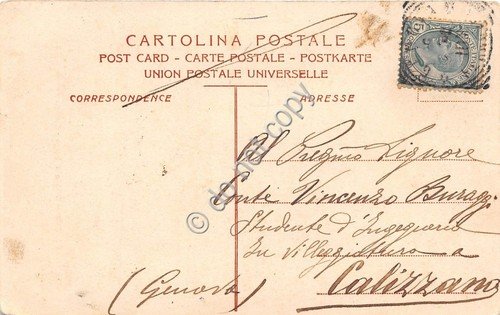 CARTOLINA POSTALE
POST CARD - CARTE POSTALE - POSTKARTE
UNION POSTALE UNIVERSELLE
CORRESPONDENCE
ADRESSE
Al Pregmo Signore
Conte Vincenzo Buraggi
Studente d'Ingegneria
In Villeggiatura a
Calizzano
(Genova)
do not copy